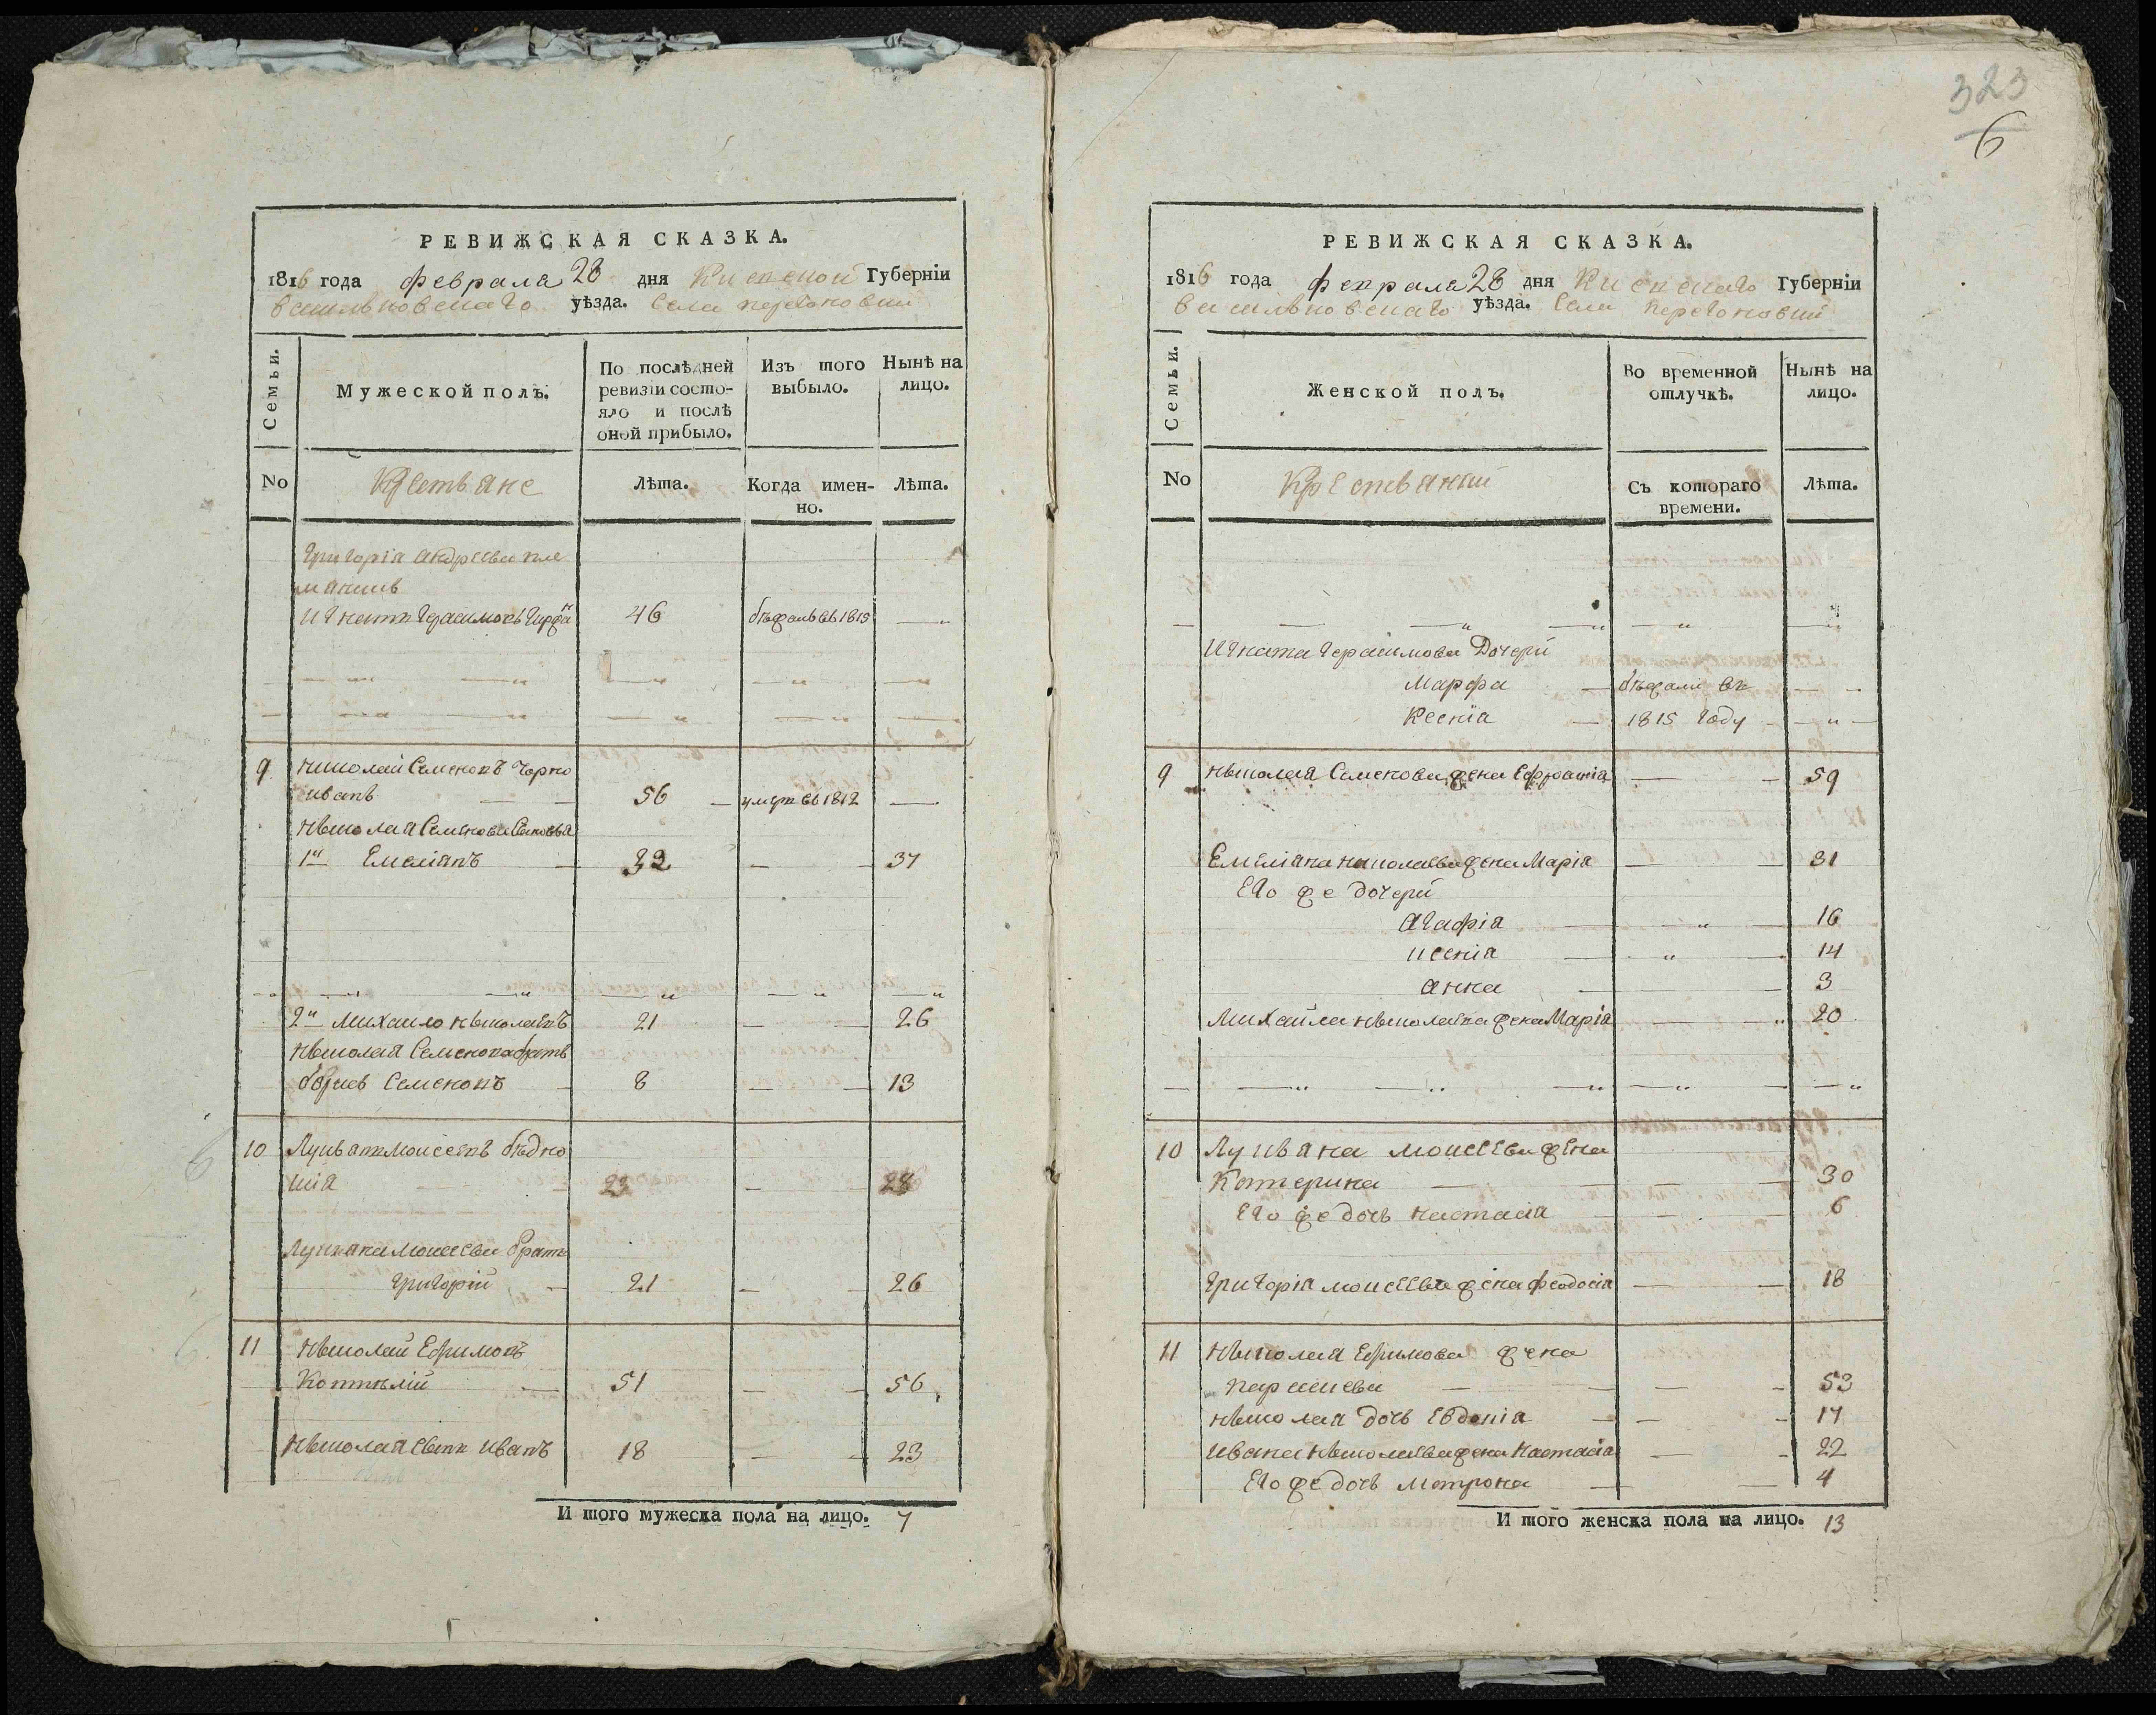 323
6
РЕВИЖСКАЯ СКАЗКА.
1816 года февраля 28 дня Киевской Губерніи
васильковскаго уѣзда. Села
Семьи.
Мужеской полъ.
По послѣдней ревизіи состояло и послѣ оной прибыло.
Изъ того выбыло.
Нынѣ на лицо.
No
Крестьяне
Лѣта.
Когда именно.
Лѣта.
Григорія андреева пле
манникъ
Игнатъ Герасимовъ 46 бѣжалъ въ 1815
9 николай Семеновъ Чорно
иванъ 56 умеръ въ 1812
николая Семенова Сыновья
1й Емеліанъ 32 37
2й Михаило николаевъ 21 26
николая Семенова братъ
борисъ Семеновъ 8 13
10 Лукьянъ Моисеевъ бѣдно
23 28
Лукьяна Моисеева братъ
Григорій 21 26
11 николай Ефимовъ
51 56
николая сынъ иванъ 18 23
И того мужеска пола на лицо. 7
РЕВИЖСКАЯ СКАЗКА.
1816 года февраля 28 дня Киевскаго Губерніи
васильковскаго уѣзда. Села
Семьи.
Женской полъ.
Во временной отлучкѣ.
Нынѣ на лицо.
No
Крестьянки
Съ котораго времени.
Лѣта.
Игната Герасимова Дочери
Марфа бѣжали въ
Ксенія 1815 году
9 николая Семенова жена Ефросинія 59
Емеліана николаева жена Марія 31
Его же дочери
агафія 16
ксенія 14
анна 3
Михайла николаева жена Марія 20
10 Лукьяна моисеева жена
Катерина 30
Его же дочь настасія 6
Григорія моисеева жена феодосія 18
11 николая Ефимова жена
параскева 53
николая дочь Евдокія 17
ивана николаева жена настасія 22
Его же дочь мотрона 4
И того женска пола на лицо. 13